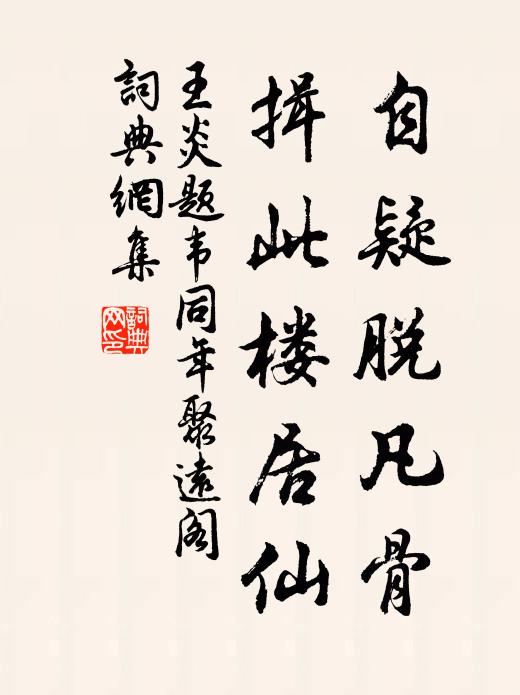 自疑脱凡骨
揖此楼居仙
王炎题韦同年聚遠阁
詞典網集
詞典网印